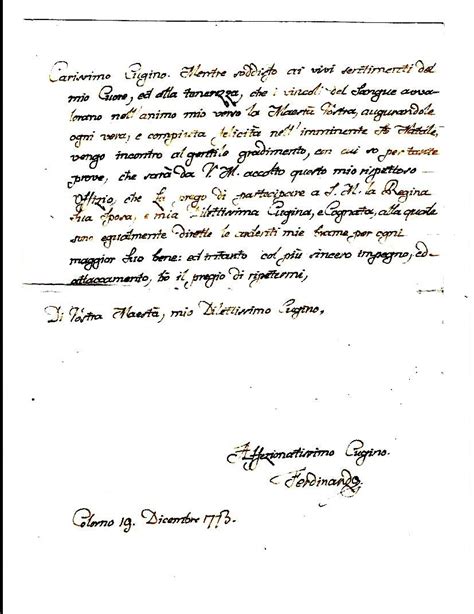 Carissimo Cugino. Mentre soddisfo ai vivi sentimenti del
mio Cuore, ed alla tenerezza, che i vincoli del Sangue avva-
lorano nell'animo mio verso la Maestà Vostra, augurandole
ogni vera, e compiuta felicità nell'imminente Sto Natale,
vengo incontro al gentile gradimento, con cui so per tante
prove, che sarà da V. M. accolto questo mio rispettoso
Uffizio, che La prego di partecipare a S. M. la Regina
Sua Sposa, e mia Dilettissima Cugina, e Cognata, alla quale
sono egualmente dirette le ardenti mie brame per ogni
maggior Suo bene: ed intanto col più sincero impegno, ed
attaccamento, hò il pregio di ripetermi,
Di Vostra Maestà, mio Dilettissimo Cugino,
Affezionatissimo Cugino.
Ferdinando
Colorno 19. Dicembre 1773.